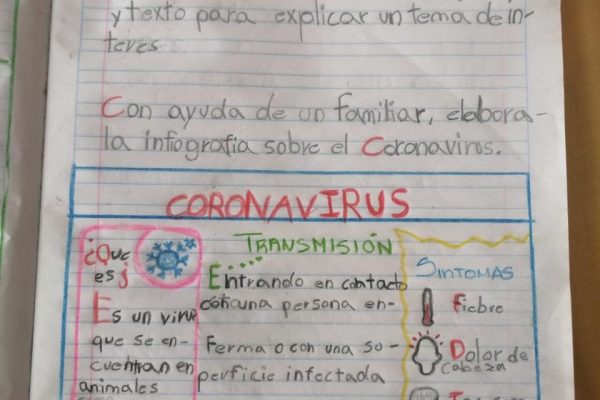 y texto para explicar un tema de in-
teres
Con ayuda de un familiar, elabora-
la infografia sobre el Coronavirus.
CORONAVIRUS
¿Que
es¿
Es un virus
que se en-
cuentran en
animales
TRANSMISIÓN
Entrando en contacto
con una persona en-
ferma o con una su-
perficie infectada
SINTOMAS
fiebre
Dolor de
cabeza